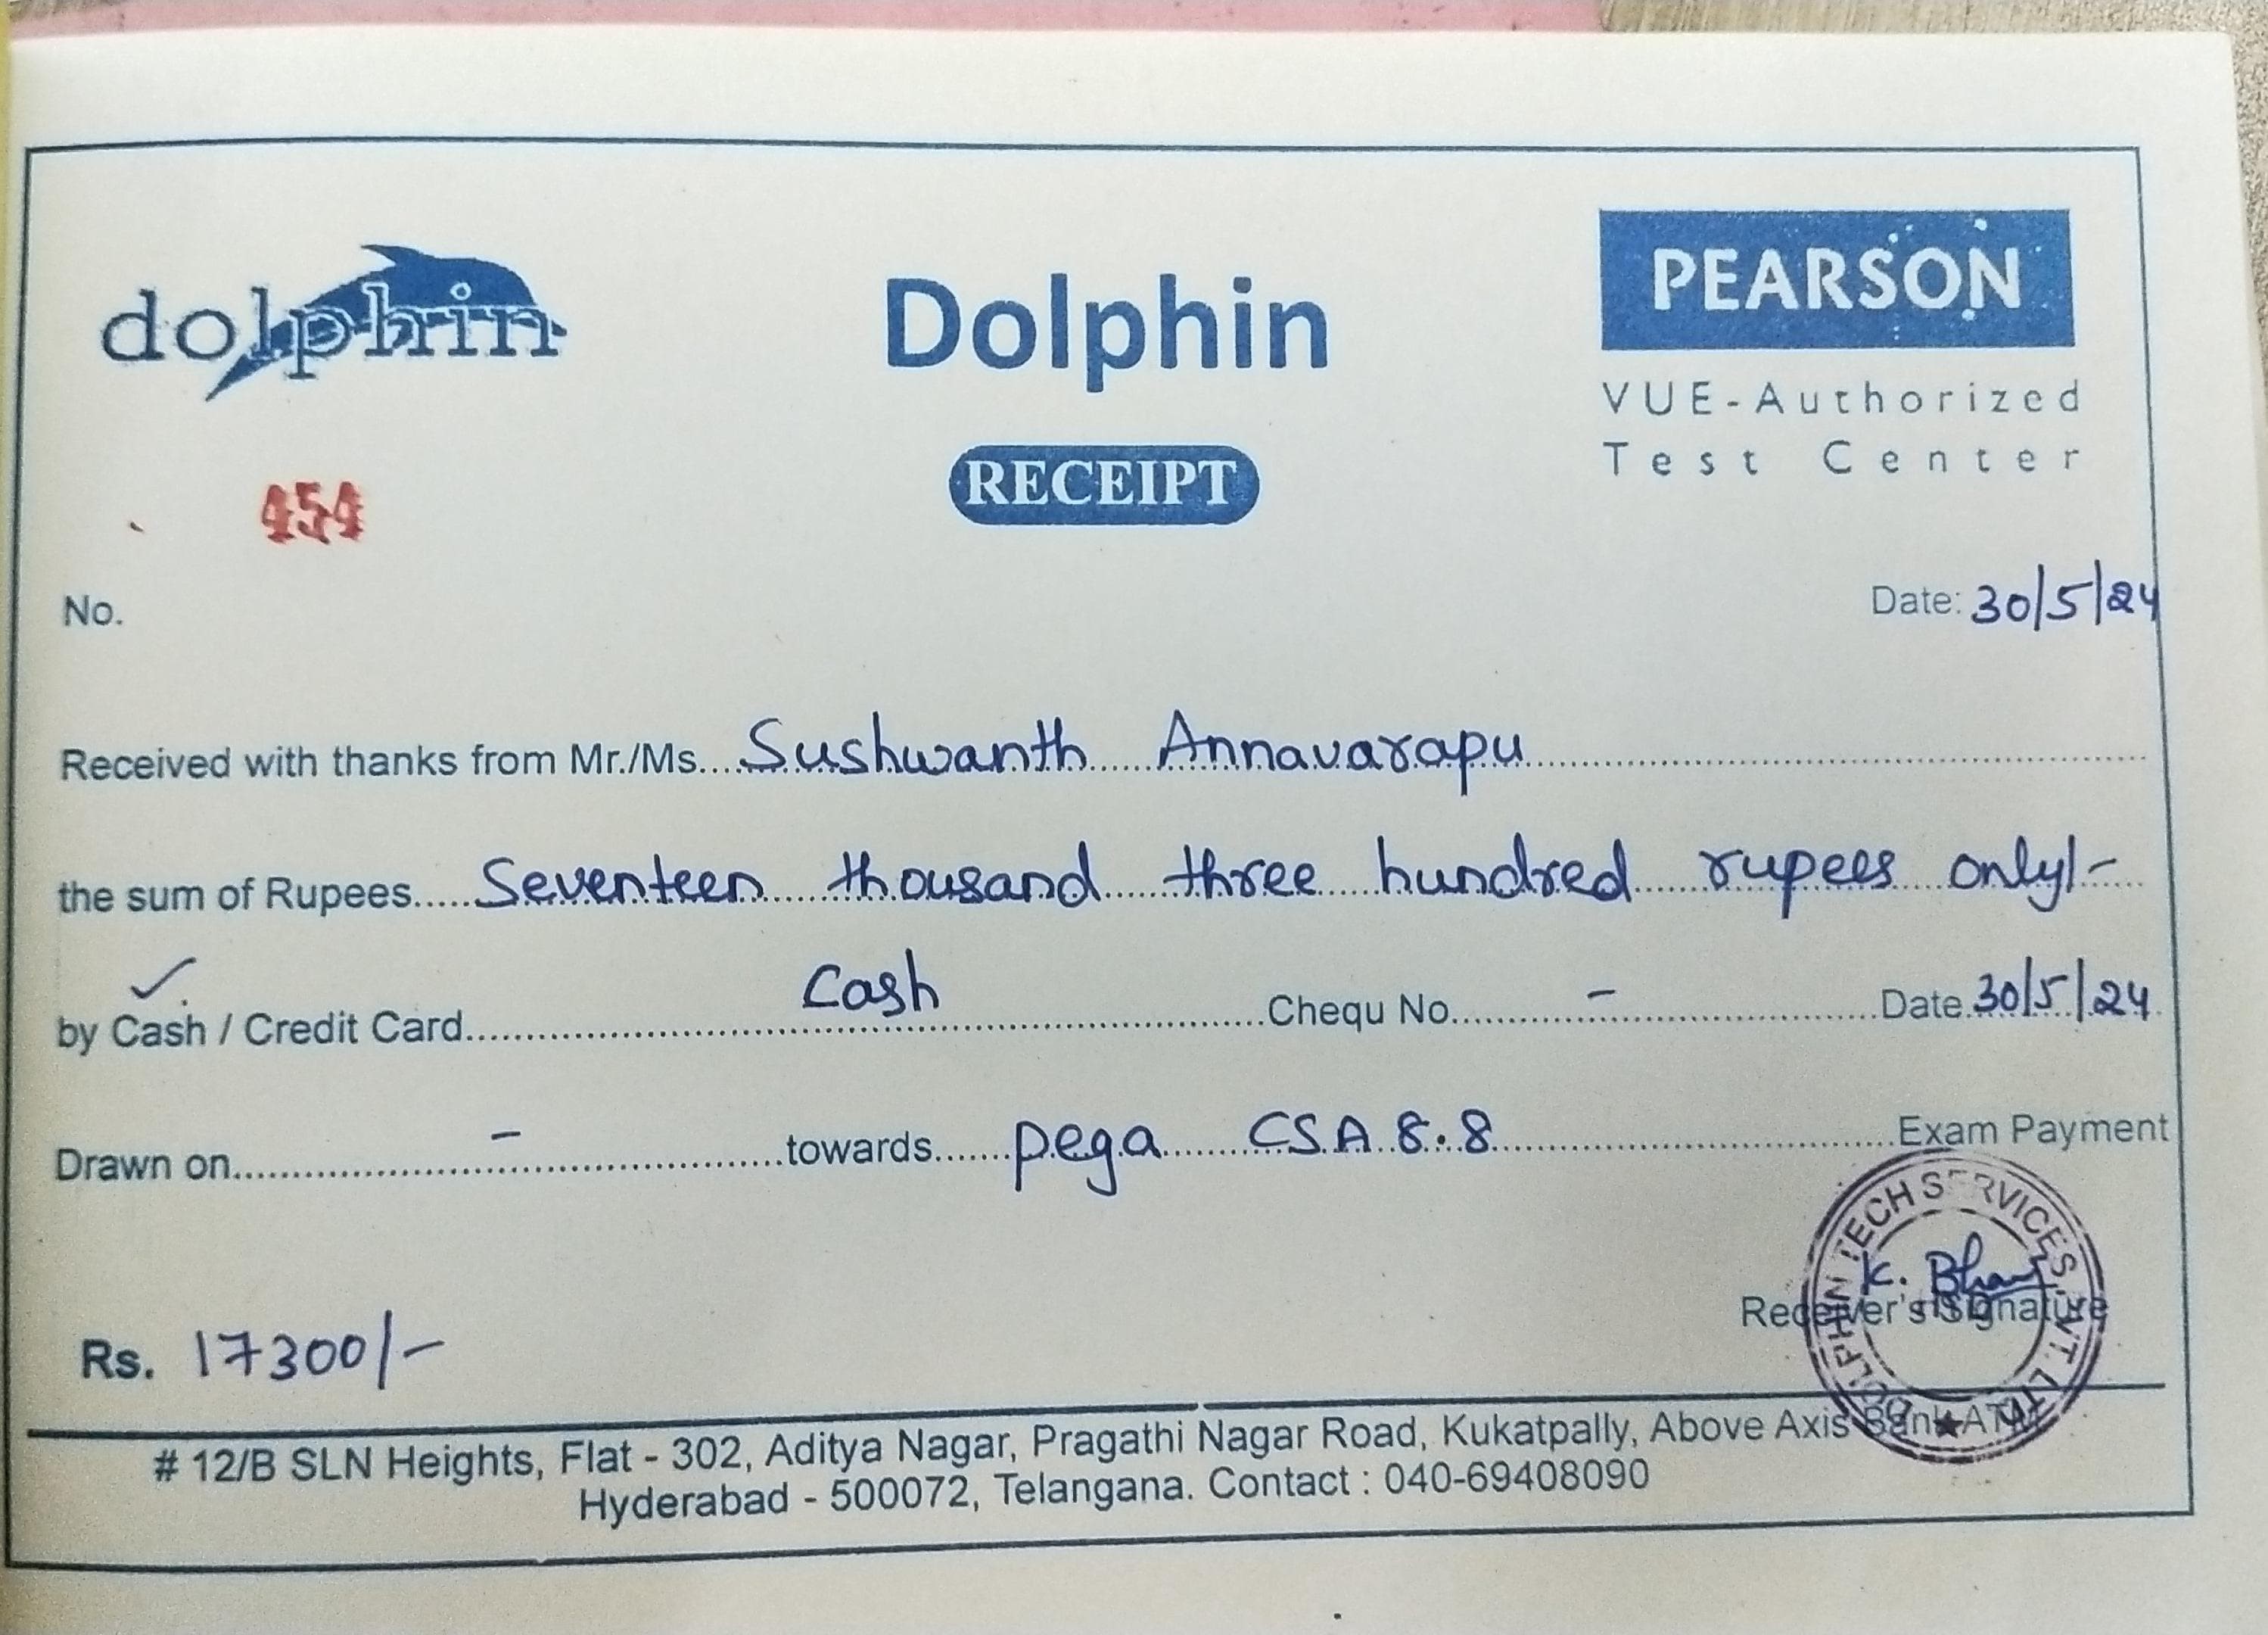 dolphin
Dolphin
PEARSON
VUE-Authorized
Test Center
RECEIPT
454
No.
Date: 30/5/24
Received with thanks from Mr./Ms. Sushwanth Annavarapu
the sum of Rupees Seventeen thousand three hundred rupees only/-
by Cash / Credit Card Cash Chequ No. - Date 30/5/24
Drawn on - towards pega CSA 8.8 Exam Payment
DOLPHIN TECH SERVICES PVT. LTD
K. 
Receiver's Signature
Rs. 17300/-
# 12/B SLN Heights, Flat - 302, Aditya Nagar, Pragathi Nagar Road, Kukatpally, Above Axis Bank ATM
Hyderabad - 500072, Telangana. Contact : 040-69408090